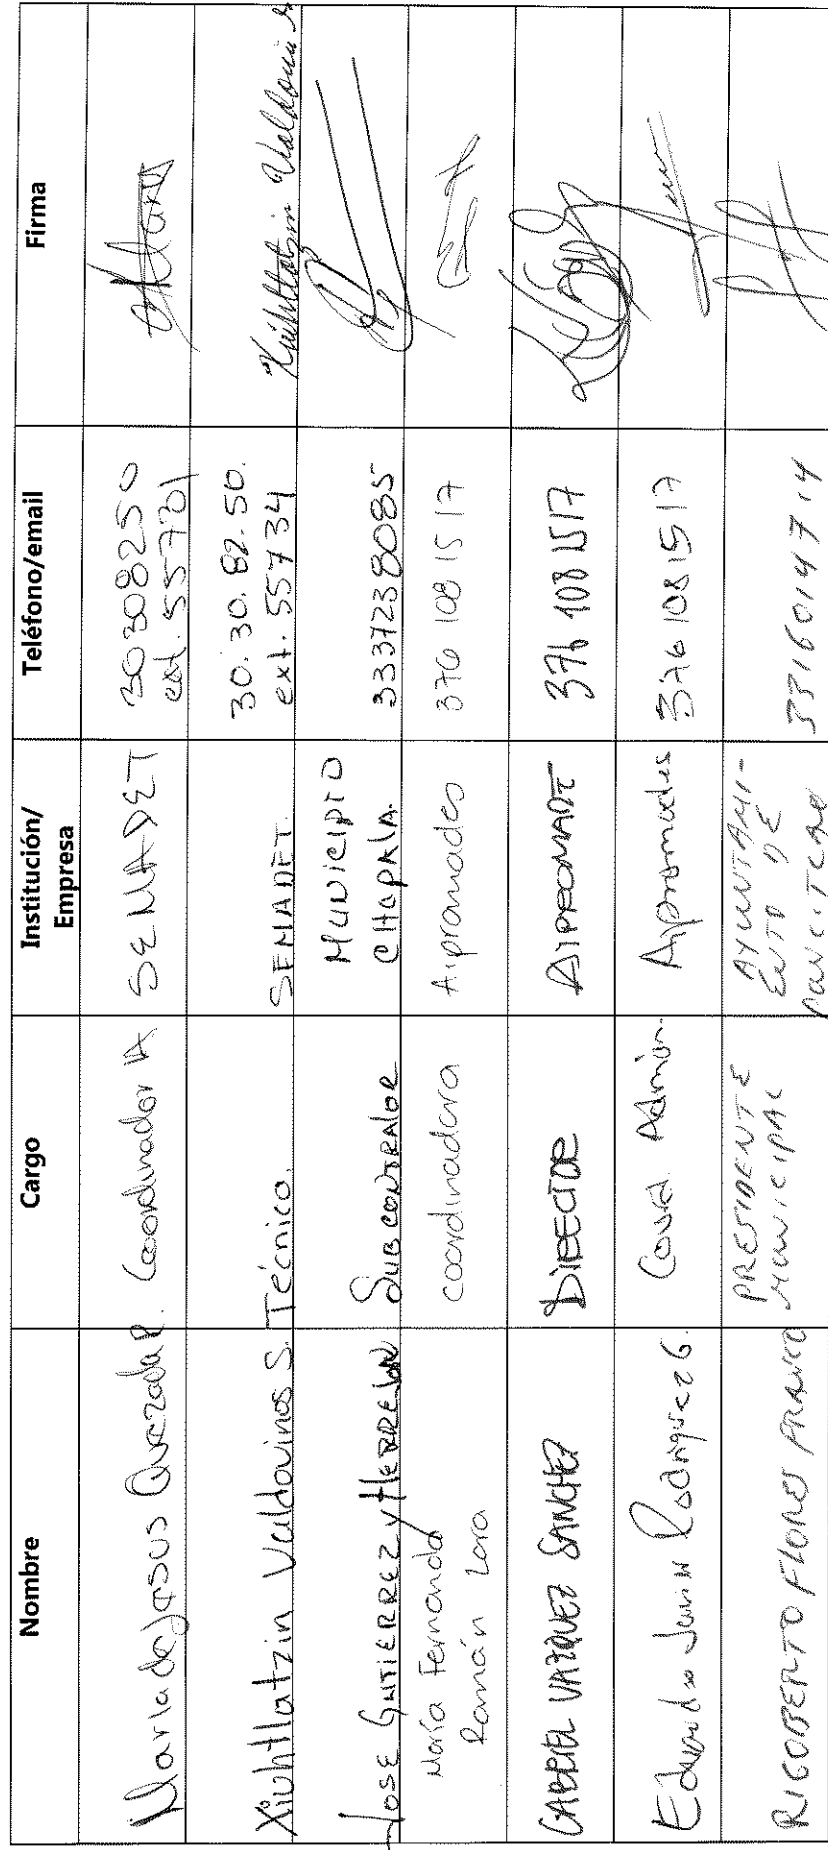 Nombre
Cargo
Institución/
Empresa
Teléfono/email
Firma
Maria de Jesus Quezada P.
Coordinador A
SEMADET
30308250
ext. 55701
Xiuhtlatzin Valdovinos S.
Técnico.
SEMADET.
30.30.82.50.
ext. 55734
Xiuhtlatzin Valdovin
Jose Gutierrez y Herrejon
Sub contralor
Municipio
Chapala.
3337238085
María Fernanda
Román Lara
coordinadora
Aipromades
376 108 15 17
GABRIEL VAZQUEZ SANCHEZ
DIRECTOR
AIPROMADE
376 108 1517
Eduardo Rodríguez G.
Coord. Admón.
Aipromades
376 108 15 17
RIGOBERTO FLORES
PRESIDENTE
MUNICIPAL
AYUNTAMI-
ENTO DE
3316014714